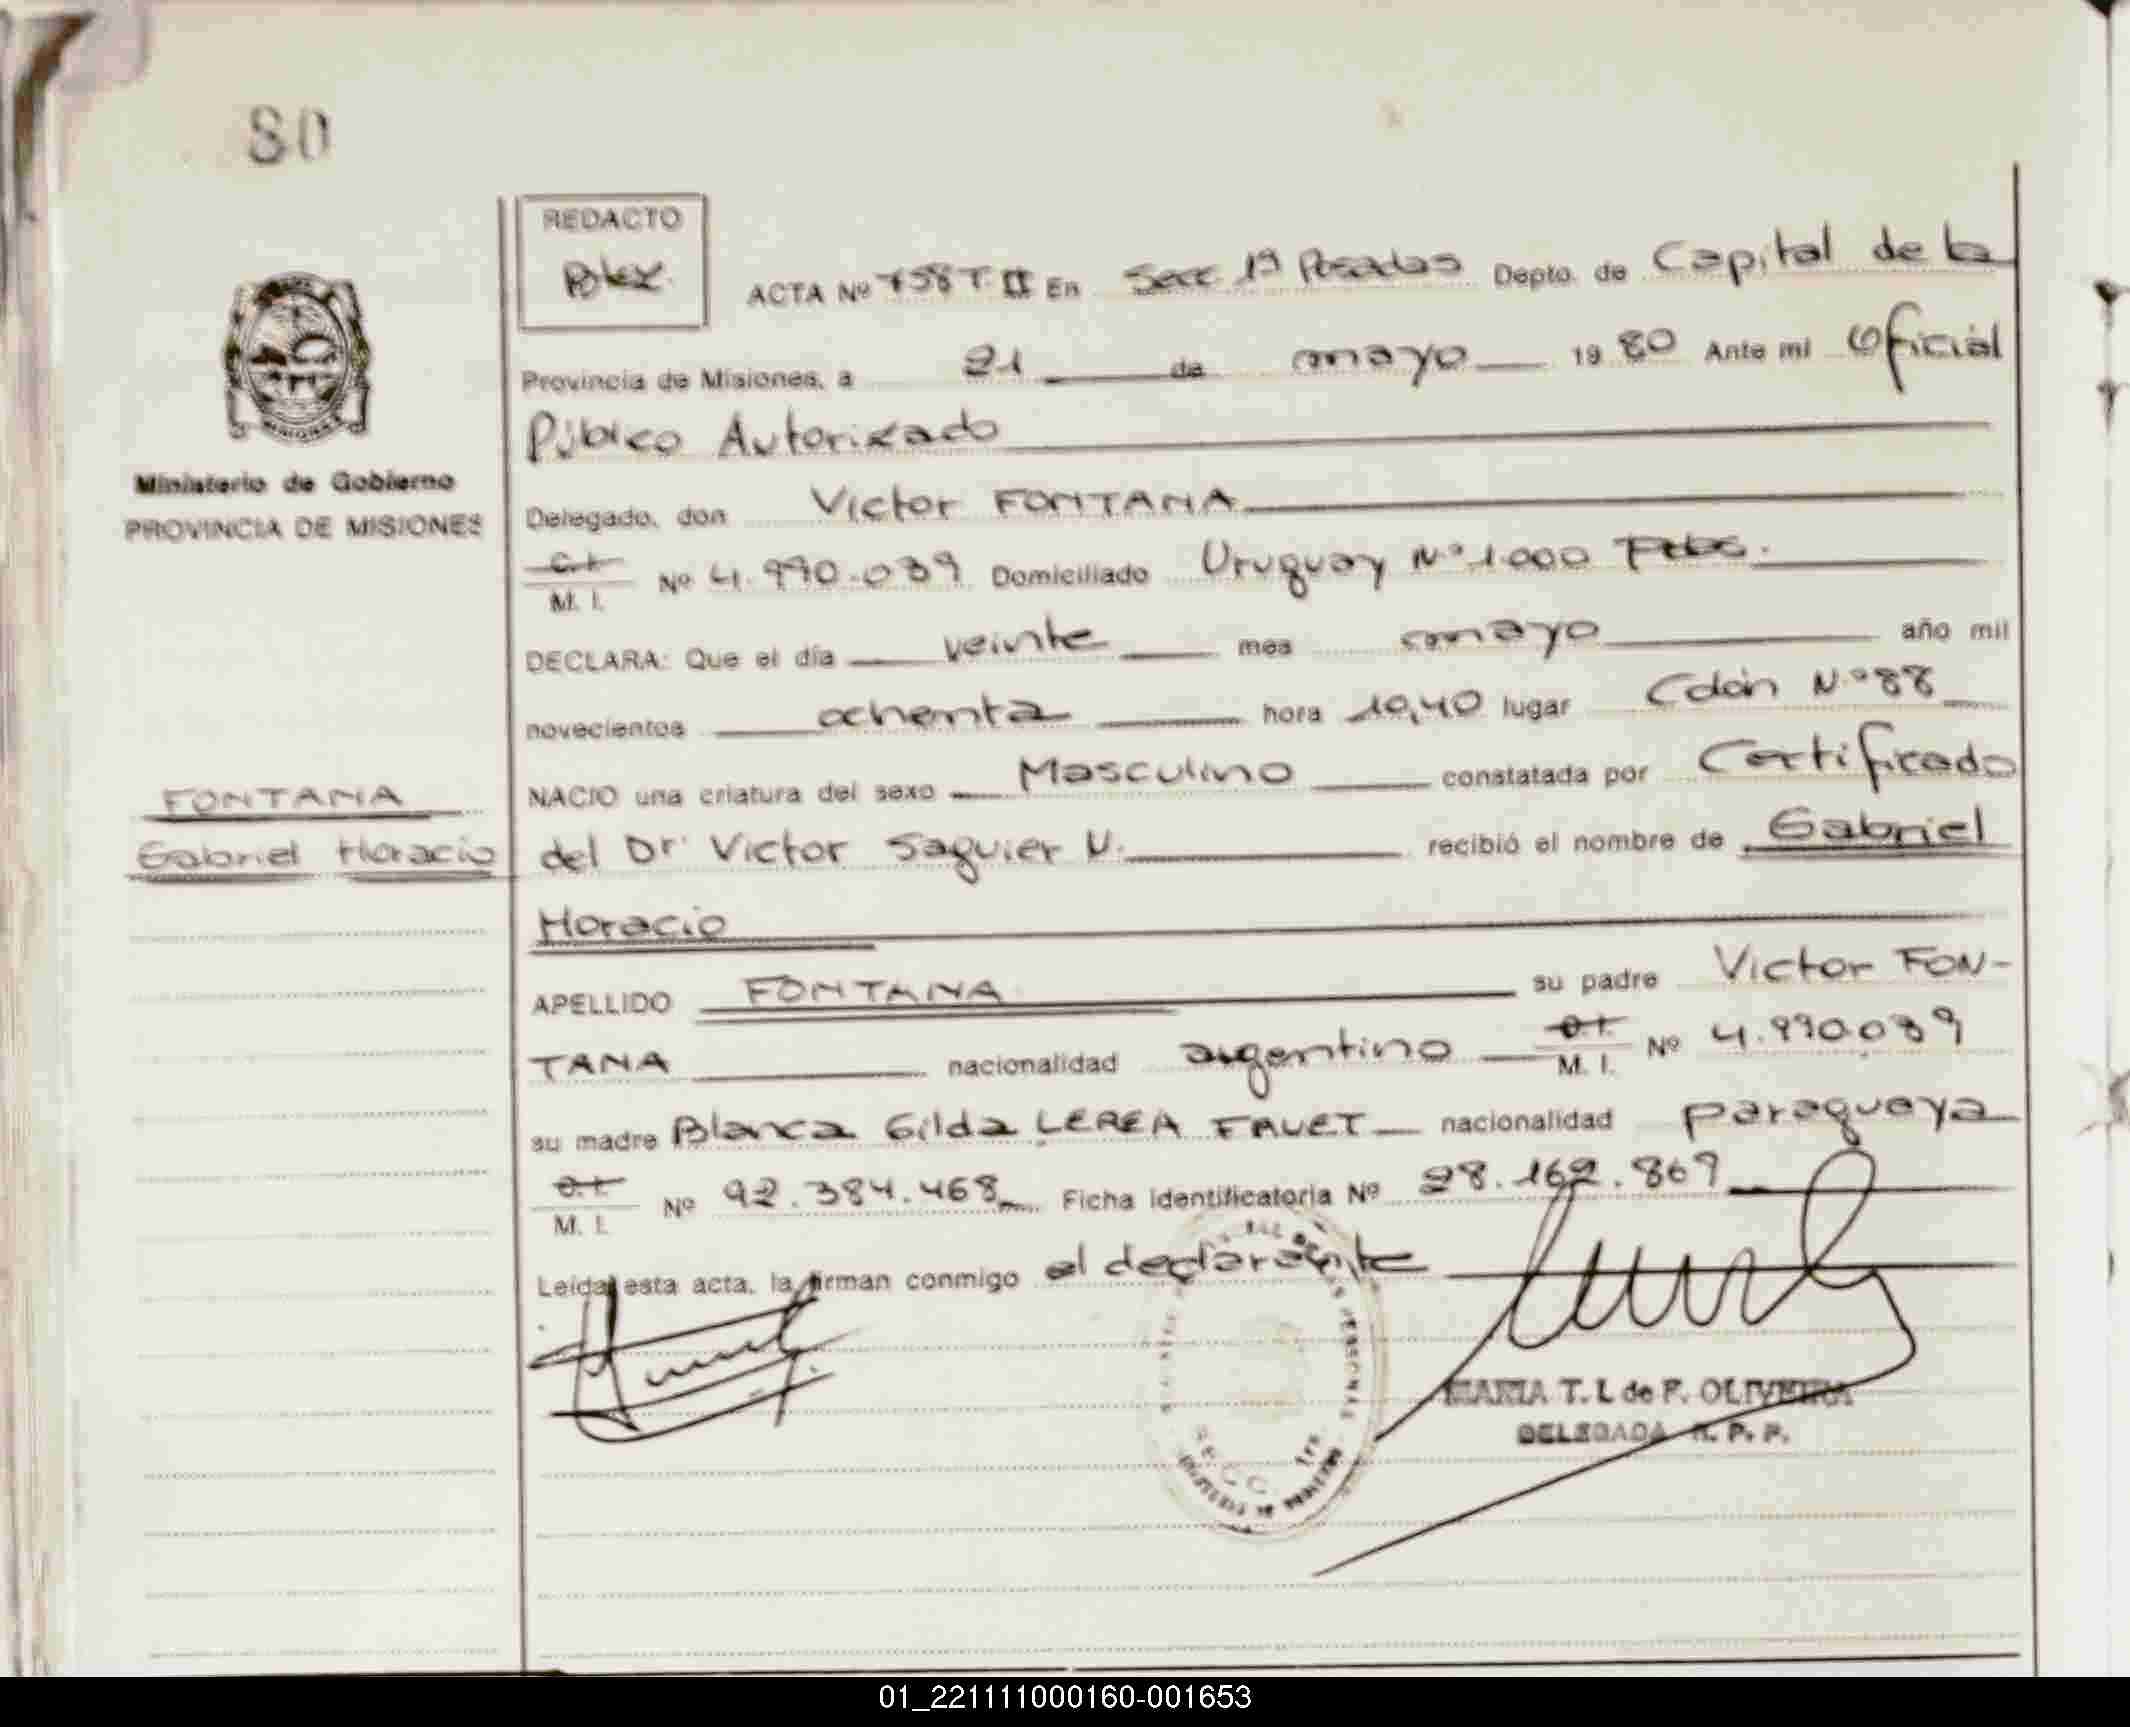 80
REDACTO
ACTA Nº 758 T. II En Secc 1ª Posadas Depto. de Capital de la
Provincia de Misiones, a 21 de mayo 1980 Ante mi Oficial
Público Autorizado
Ministerio de Gobierno
PROVINCIA DE MISIONES
Delegado, don Victor FONTANA
C.I. M. I. Nº 4.990.039 Domiciliado Uruguay Nº 1.000 Pdas.
DECLARA: Que el día veinte mes mayo año mil
novecientos ochenta hora 10,40 lugar Colón Nº 88
NACIO una criatura del sexo Masculino constatada por Certificado
FONTANA
Gabriel Horacio
del Dr Victor Saguier N. recibió el nombre de Gabriel
Horacio
APELLIDO FONTANA su padre Victor FON-
TANA nacionalidad argentino C.I. M. I. Nº 4.990.039
su madre Blanca Gilda LEREA FAVET nacionalidad paraguaya
C.I. M. I. Nº 92.384.468 Ficha identificatoria Nº 28.162.869
Leída esta acta, la firman conmigo el declarante
MARIA T. L de F. OLIVEIRA
DELEGADA R. P. P.
SECC 1ra
01_221111000160-001653